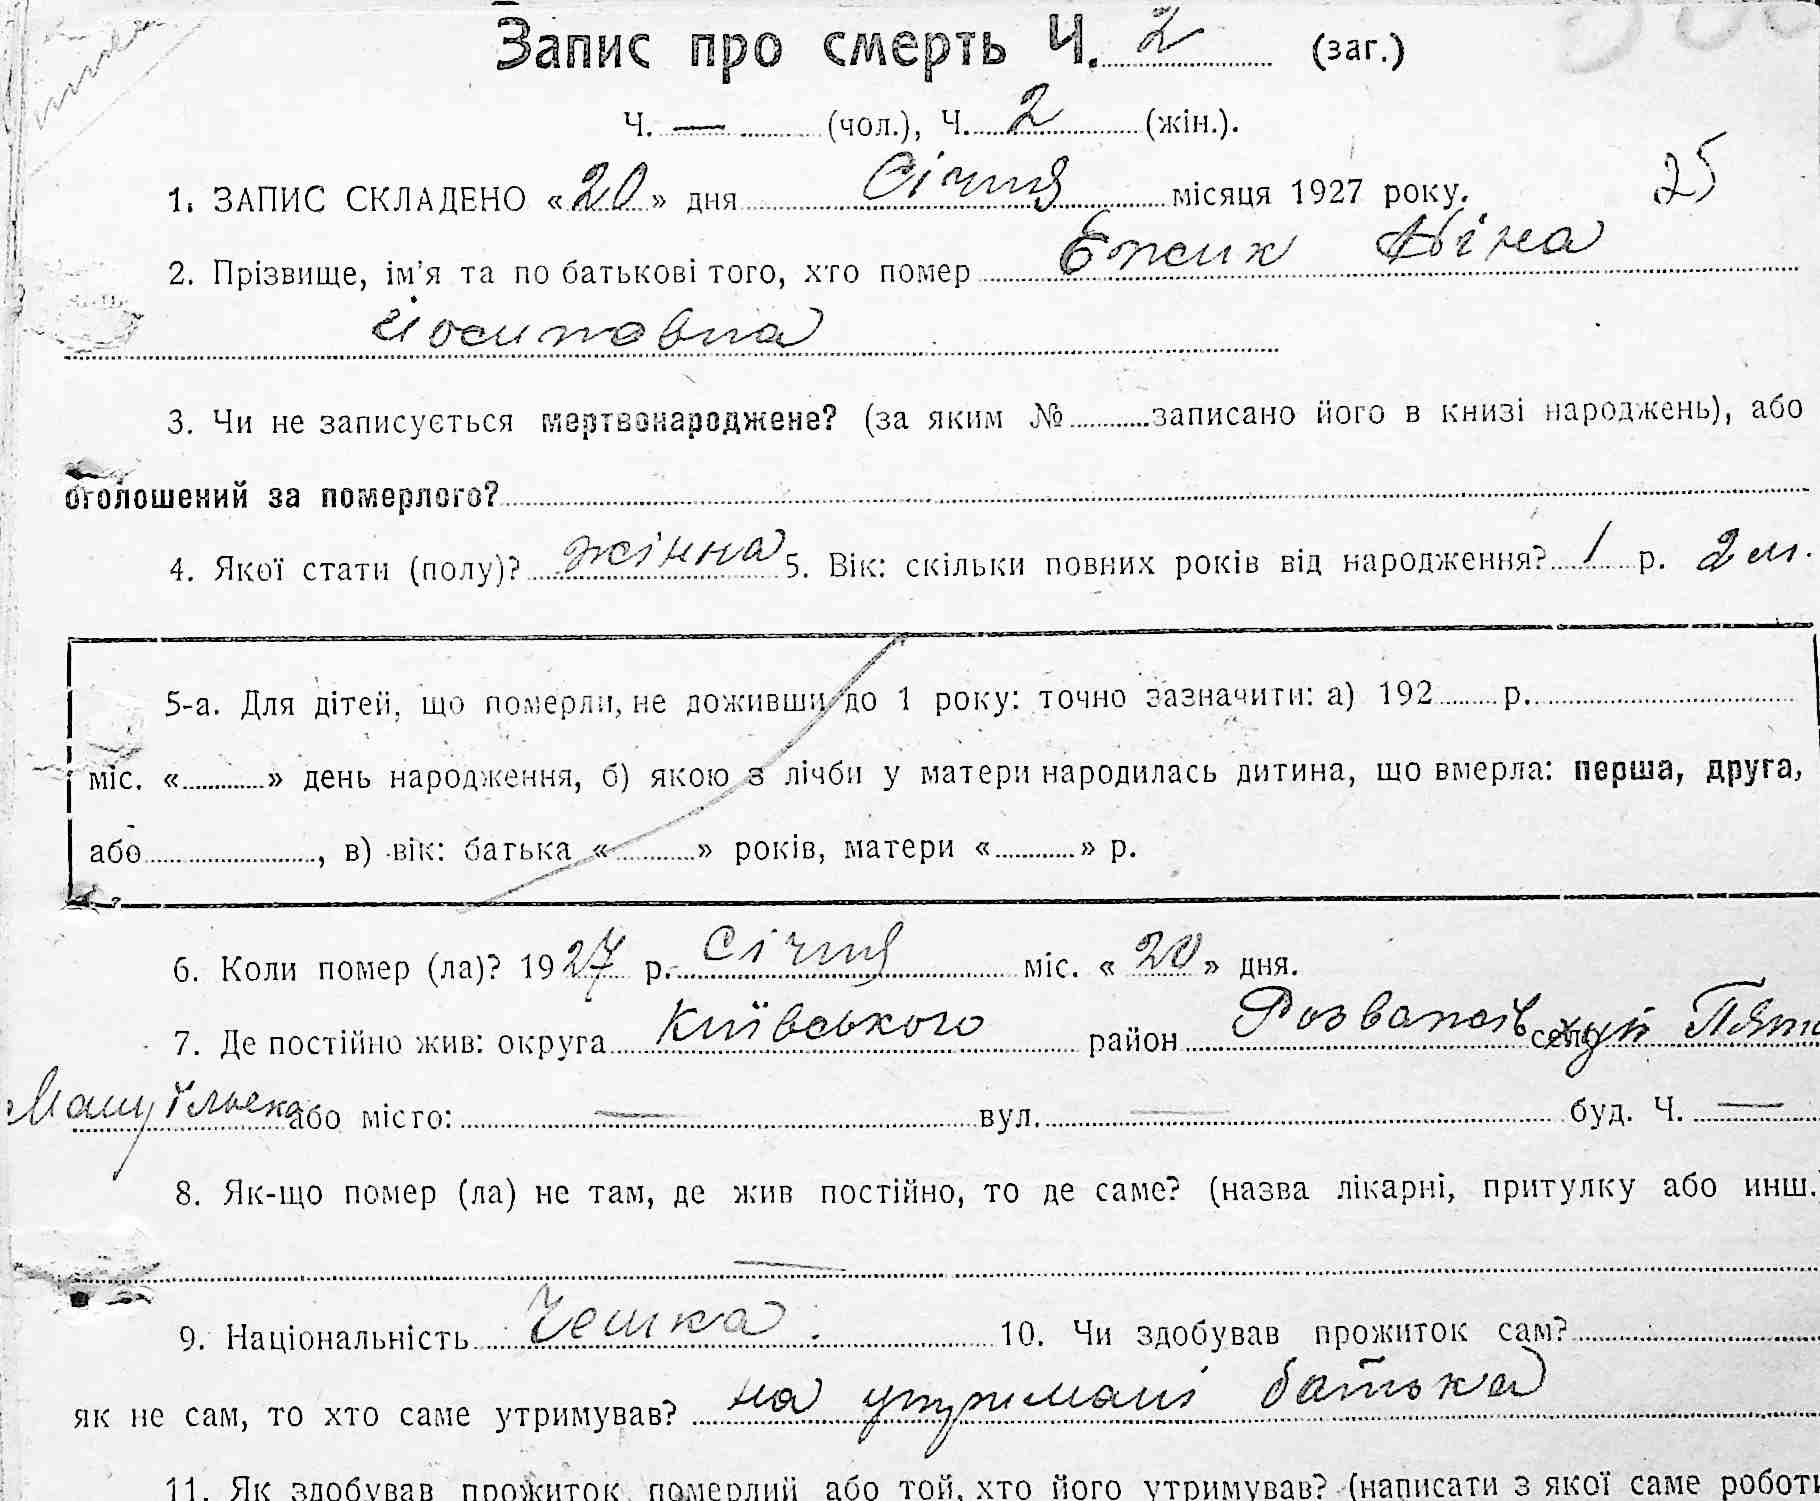 Запис про смерть Ч. 2 (заг.)
Ч. — (чол.), Ч. 2 (жін.).
25
1. ЗАПИС СКЛАДЕНО «20» дня Січня місяця 1927 року.
2. Прізвище, ім'я та по батькові того, хто помер Ёжик Ніна
Йосиповна
3. Чи не записується мертвонароджене? (за яким № записано його в книзі народжень), або
оголошений за померлого?
4. Якої стати (полу)? жінна 5. Вік: скільки повних років від народження? 1 р. 2 м.
5-а. Для дітей, що померли, не доживши до 1 року: точно зазначити: а) 192 р.
міс. « » день народження, б) якою з лічби у матери народилась дитина, що вмерла: перша, друга,
або , в) вік: батька « » років, матери « » р.
6. Коли помер (ла)? 1927 р. Січня міс. «20» дня.
7. Де постійно жив: округа Київського район село
або місто: — вул. — буд. Ч. —
8. Як-що помер (ла) не там, де жив постійно, то де саме? (назва лікарні, притулку або инш.
—
9. Національність Чешка. 10. Чи здобував прожиток сам?
як не сам, то хто саме утримував? на утримані батька
11. Як здобував прожиток померлий або той, хто його утримував? (написати з якої саме робот